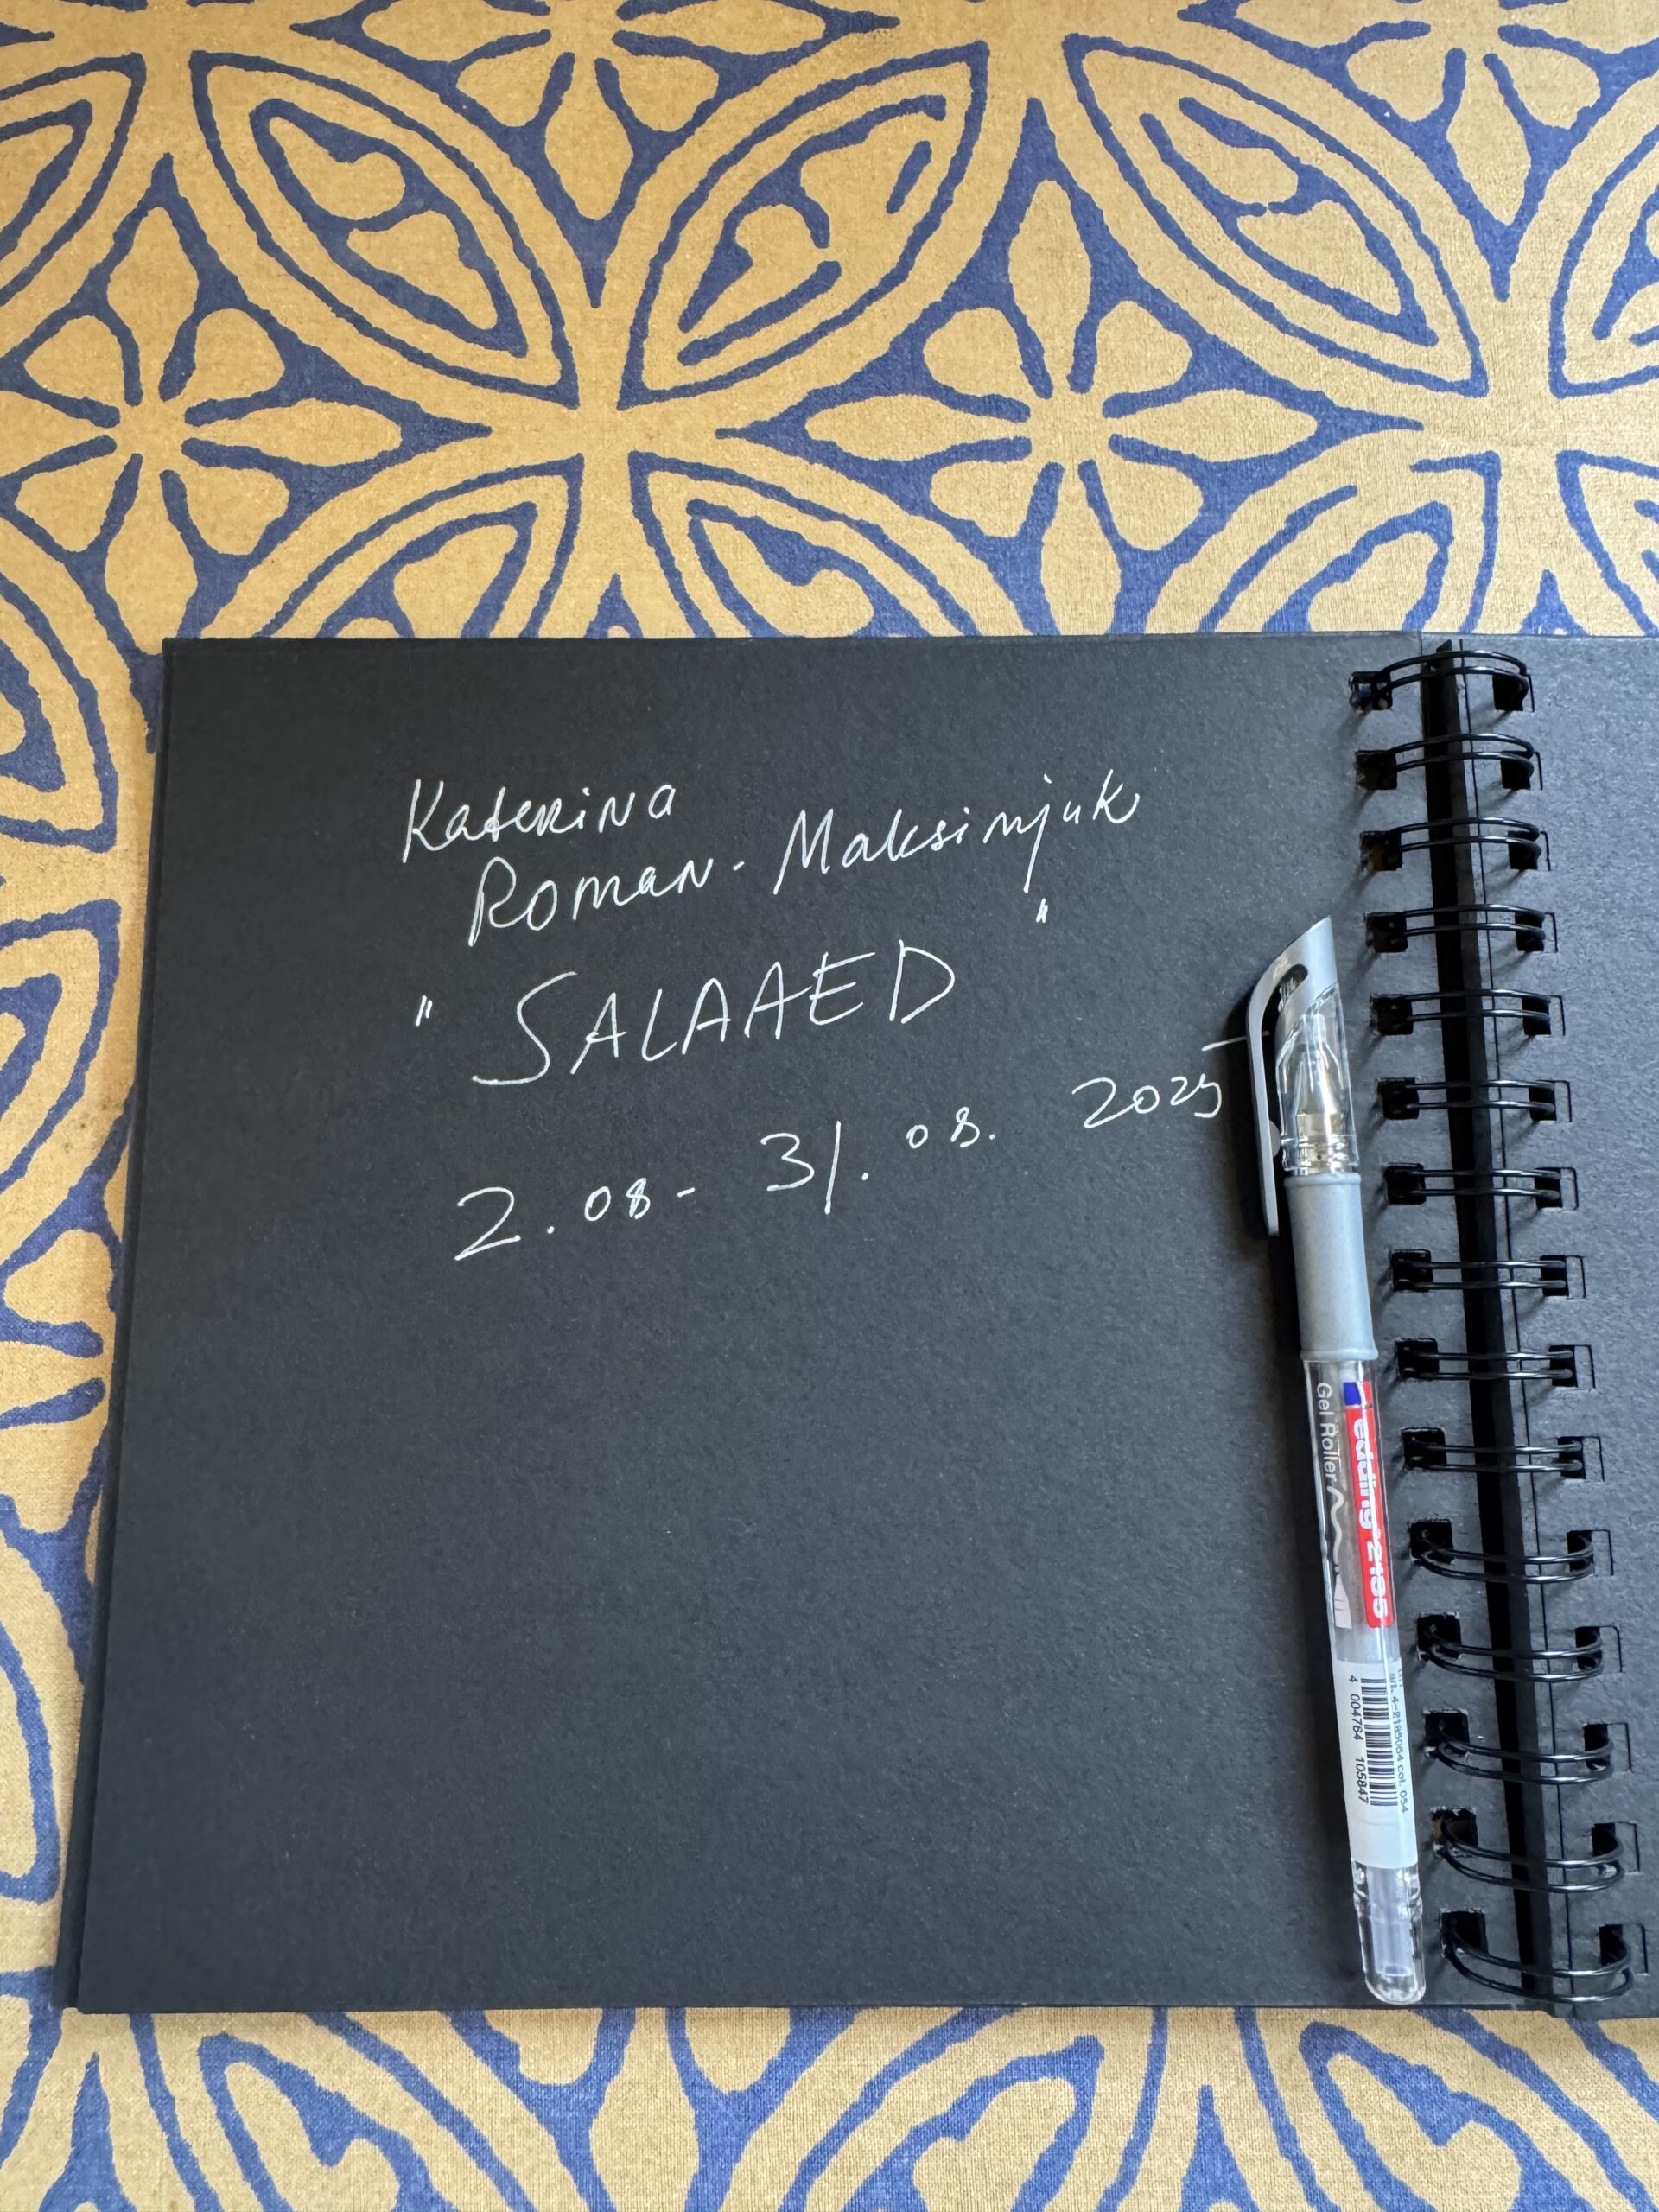 Katerina
Roman-Maksimjuk
"SALAAED"
2.08- 31.08. 2025
edding 2185
Gel Roller
art. 4-2185054 col. 054
4 004764 105847